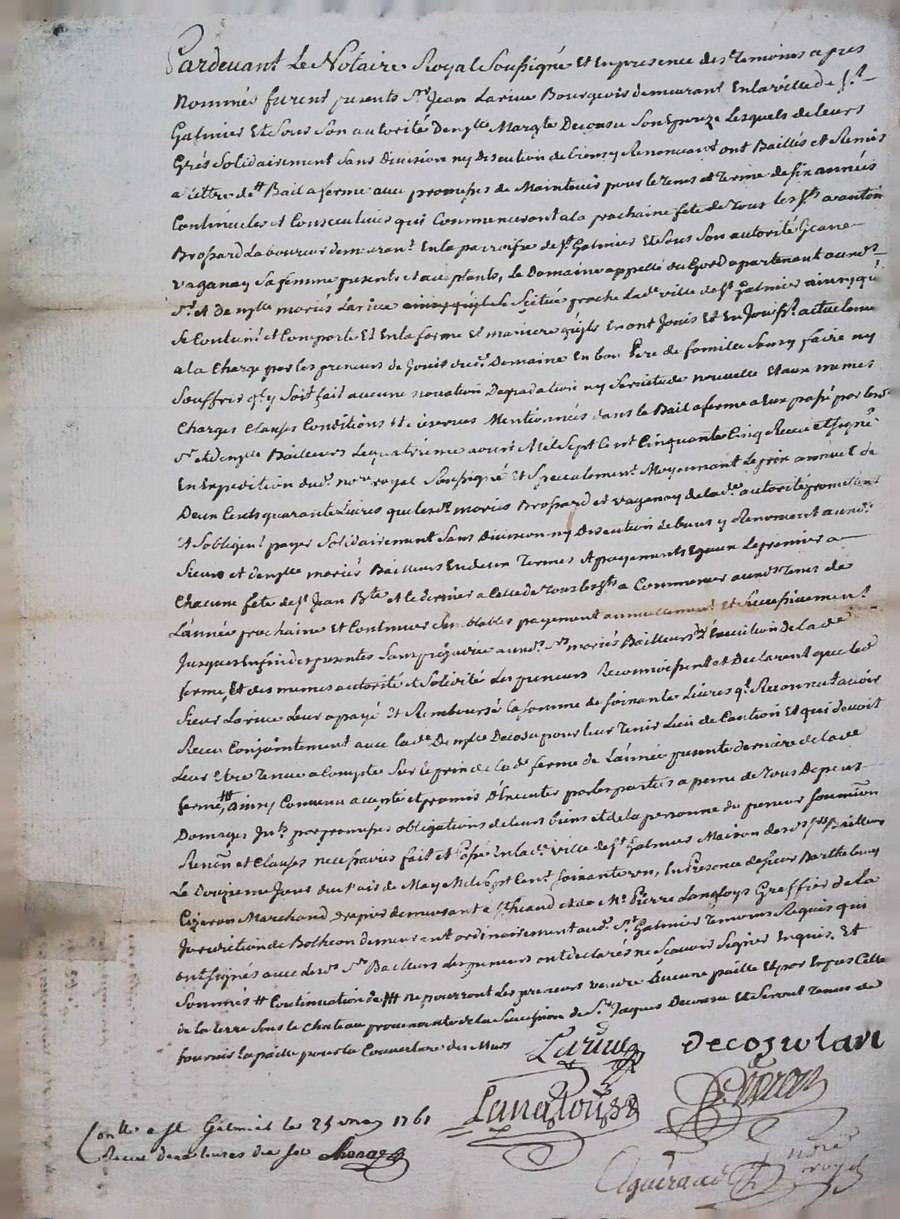 Pardevant Le Notaire Royal Soussigné Et En presence des Temoins apres
Nommés furent presents Sr. Jean Larive Bourgeois demeurant En la ville de St.
Galmier Et Sous Son autorité Demlle Margte Decosu Son Epouze Lesquels de leurs
Grés Solidairement Sans Division ny Discution de biens y Renoncant ont Baillés et Remis
a titre de Bail a ferme aux promesses de Maintenir pour le Tems et Terme de six années
Continuelles et Consecutives qui Commenceront a la prochaine fete de Tous les Sts a
Brossard Laboureur demeurant En la parroisse de St Galmier Et Sous Son autorité Jeane
Vaganay Sa femme presents et acceptants, Le Domaine appellé du apartenant auxds
Sr. et Demlle mariés Larive Scitué proche Lade ville de St Galmier ainsy qu'il
Se Contient et Comporte Et En la forme Et maniere qu'ils En ont Jouis Et En Jouissent actuelemt
a la Charge par les preneurs de Jouir dud. Domaine En bon Pere de famille Sans y faire ny
Souffrir qu'il y Soit fait aucune novation Degradation ny Servitude nouvelle Et aux memes
Charges Clauses Conditions Et reserves Mentionnés dans le Bail a ferme a Eux passé par lesd.
Sr. et Demlle Bailleurs Le quatrieme avril Mil Sept Cent Cinquante Cinq Receu et Signé
En Expedition dud. nore royal Soussigné Et Specialement Moyennant Le prix annuel de
Deux Cents quarante Livres que lesd. mariés Brossard et Vaganay de lade autorité promettent
Et S'obligent payer Solidairement Sans Division ny Discution de biens y Renoncant auxd.
Sieur et Demlle mariés Bailleurs En deux Termes Et payements Egaux Le premier a
Chacune fete de St Jean Bte et le dernier a Celle de Tous les Sts a Commencer auxds Tems de
L'année prochaine Et Continuer Semblables payement annuellement Et Successivement
Jusques En fin des presentes Sans prejudice auxd. Srs mariés Bailleurs de l'execution de lade
ferme, Et des memes autorité et Solidité des preneurs Reconnoissent et Declarent que led.
Sieur Larive Leur a payé Et Remboursé la Somme de soixante Livres qu'il Reconnut avoir
Receu Conjointement avec lade Demlle Decosu pour leur Tenir Lieu de Caution Et qui devoit
Leur Etre Tenue a Compte Sur le prix de lade ferme de L'année presente derniere de lade
ferme, ainsy Convenu accepté et promis D'Executer par les parties a peine de Tous Depens
Domages Intts par promesses obligations de leurs biens et de la personne du preneur Soumissions
Renons et Clauses necessaires fait et Passé En lade ville de St Galmier Maison desds Srs Bailleurs
Le Jour du Mois de May Mil Sept Cent Soixante un, En Presence de Sieur Barthelemy
Marchand demeurant a St. et de Me. Pierre Langloys Greffier de La
Jurisdiction de Botheon demeurant ordinairement aud. St. Galmier Temoins Requis qui
ont Signés avec lesds Srs Bailleurs les preneurs ont declarés ne Scavoir Signer Enquis, Et
Sommés # Continuation de # ne pourront Les preneurs vendre aucune paille Et par Exprés Celle
de la terre Sous le Chateau provenante de la Succession de Sr. Jaques Decosu Et Seront Tenus de
fournir la paille pour la Couverture des Murs
Larive Decosu larive
Langloys
Conlle a St Galmier le 25 may 1761
Receu
Agueraud nore royal